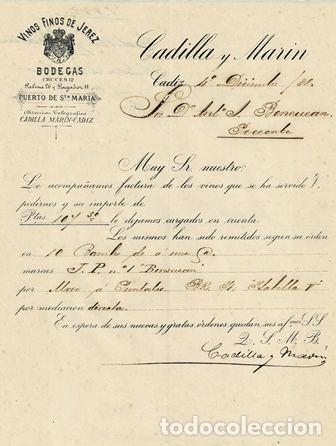 VINOS FINOS DE JEREZ
BODEGAS
CRUCES 12
Palma 20 y Pagador 11
PUERTO DE Sta MARIA
Dirección Telegráfica
CADILLA MARIN-CADIZ
Cadilla y Marin
Cadiz 4 Diciembre
Sr. Dn Anto A. Bensusan
Presente
Muy Sr. nuestro:
Le acompañamos factura de los vinos que se ha servido V.
pedirnos y su importe de
Ptas 107 50 le dejamos cargados en cuenta.
Los mismos han sido remitidos segun su órden
en 10 de a una @
marcas J. P. nº 1 Bensusan
por a Puntales
por mediacion directa
En espera de sus nuevas y gratas órdenes quedan sus afmos S.S.
Q. S. M. B.
Cadilla y Marin
todocoleccion